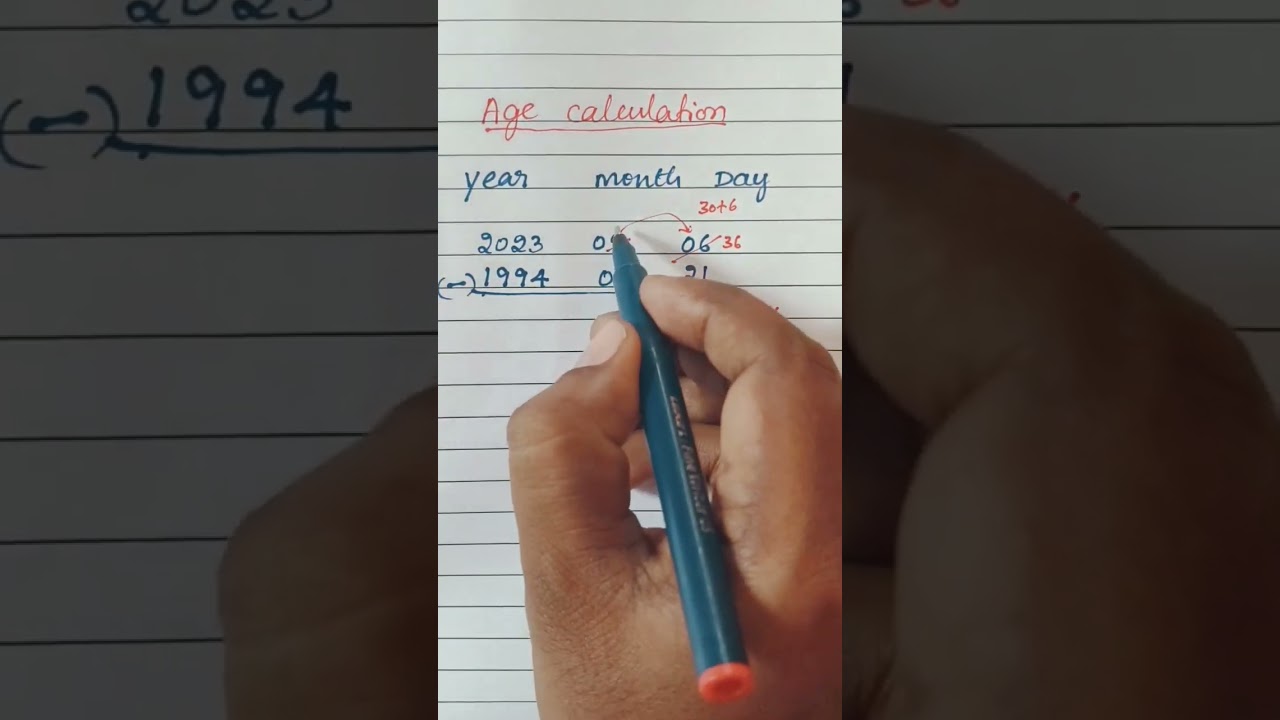 Age calculation
year month Day
30+6
2023 06 36
(-) 1994 21
2023
(-) 1994